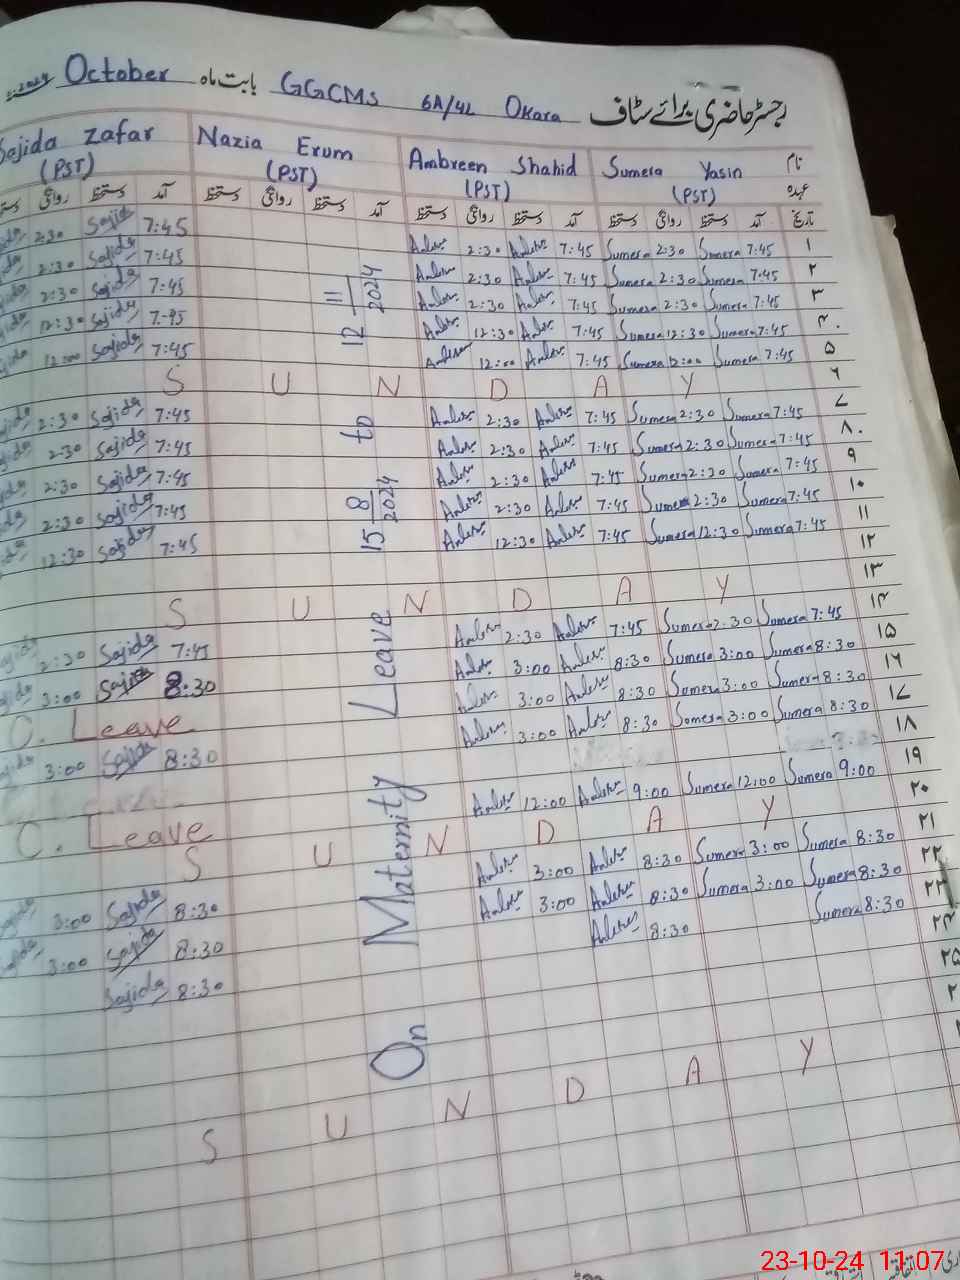 2024 October بابت ماہ GGCMS 6A/4L Okara رجسٹر حاضری برائے سٹاف
Sajida Zafar Nazia Erum Ambreen Shahid Sumera Yasin نام
(PST) (PST) (PST) (PST) عہدہ
روانگی دستخط آمد دستخط روانگی دستخط آمد دستخط روانگی دستخط آمد دستخط روانگی دستخط آمد تاریخ
2:30 Sajida 7:45 2:30 7:45 Sumera 2:30 Sumera 7:45 ۱
2:30 Sajida 7:45 2:30 7:45 Sumera 2:30 Sumera 7:45 ۲
2:30 Sajida 7:45 2:30 7:45 Sumera 2:30 Sumera 7:45 ۳
12:30 Sajida 7:45 12:30 7:45 Sumera 12:30 Sumera 7:45 ۴
12:00 Sajida 7:45 12:00 7:45 Sumera 12:00 Sumera 7:45 ۵
S U N D A Y ۶
2:30 Sajida 7:45 2:30 7:45 Sumera 2:30 Sumera 7:45 ۷
2:30 Sajida 7:45 2:30 7:45 Sumera 2:30 Sumera 7:45 ۸
2:30 Sajida 7:45 2:30 7:45 Sumera 2:30 Sumera 7:45 ۹
2:30 Sajida 7:45 2:30 7:45 Sumera 2:30 Sumera 7:45 ۱۰
12:30 Sajida 7:45 12:30 7:45 Sumera 12:30 Sumera 7:45 ۱۱
۱۲
S U N D A Y ۱۳
2:30 Sajida 7:45 2:30 7:45 Sumera 2:30 Sumera 7:45 ۱۴
3:00 Sajida 8:30 3:00 8:30 Sumera 3:00 Sumera 8:30 ۱۵
C. Leave 3:00 8:30 Sumera 3:00 Sumera 8:30 ۱۶
3:00 Sajida 8:30 3:00 8:30 Sumera 3:00 Sumera 8:30 ۱۷
۱۸
C. Leave 12:00 9:00 Sumera 12:00 Sumera 9:00 ۱۹
S U N D A Y ۲۰
3:00 Sajida 8:30 3:00 8:30 Sumera 3:00 Sumera 8:30 ۲۱
3:00 Sajida 8:30 3:00 8:30 Sumera 3:00 Sumera 8:30 ۲۲
Sajida 8:30 8:30 Sumera 8:30 ۲۳
۲۴
۲۵
S U N D A Y
On Maternity Leave 15 8 2024 to 12 11 2024
23-10-24 11:07